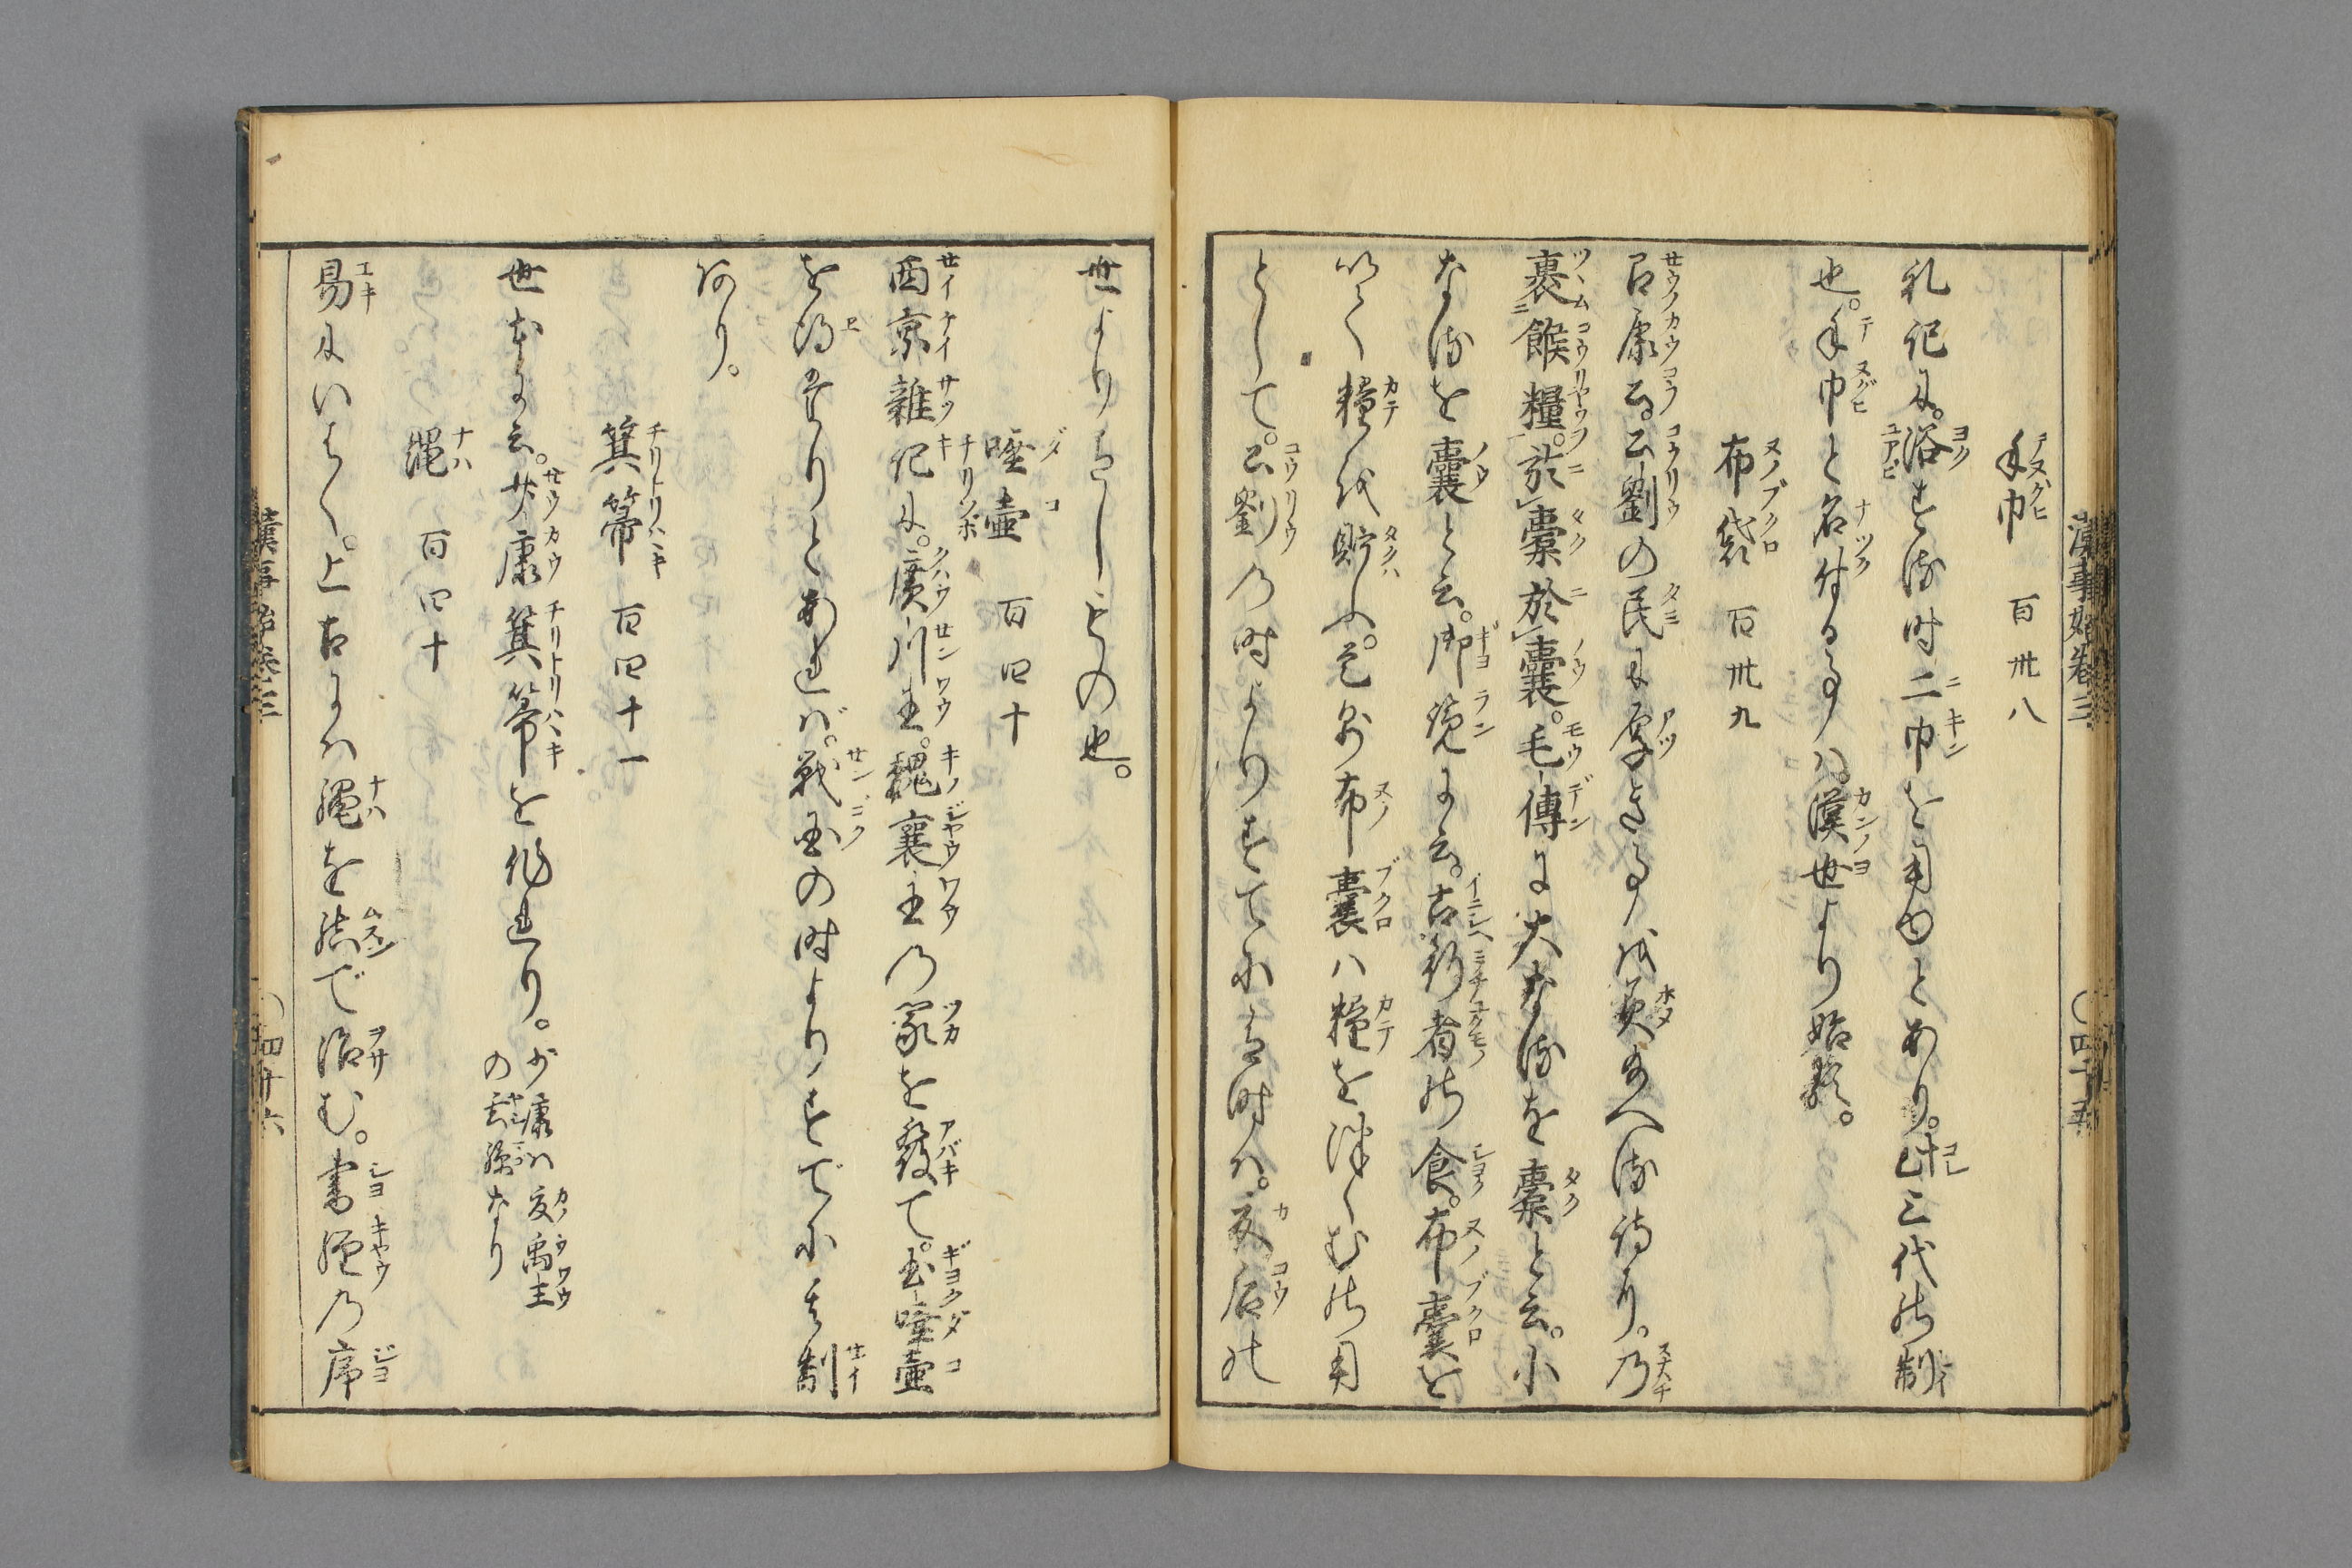 漢事始巻三 ○四十五
手巾 百卅八
礼記に。浴する時二巾を用ゆとあり。此三代の制
也。手巾と名付る事ハ。漢世より始歟。
布袋 百卅九
召康公。公劉の民に厚き事を美玉へる詩り。乃
裹餱糧。於橐於囊。毛傳に大なるを橐と云。小
なるを囊と云。御覧に云。古行者の食。布囊を
以て糧を貯ふ。是則布囊ハ糧を洋くむの用
として。公劉の時よりすでに有時ハ。夏后の
世よりなしもの也。
唾壷 百四十
西京雜記に。廣川王。魏襄王の冢を發て。玉唾壷
を得たりとあれバ。戦国の時よりすでに其制
あり。
箕箒 百四十一
世本に云。少康箕箒を作れり。少康ハ夏禹王
の玄孫なり
縄 百四十
易にいはく。上古にハ縄を結で治む。書經の序
漢事始巻三 ○四十六